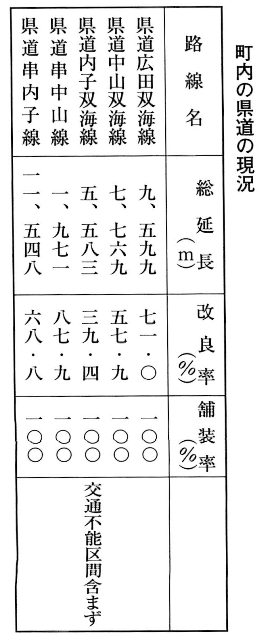 町内の県道の現況
路線名 総延長(m) 改良率(%) 舗装率(%)
県道広田双海線 九、五九九 七一・〇 一〇〇
県道中山双海線 七、七六九 五七・九 一〇〇
県道内子双海線 五、五八三 三九・四 一〇〇
県道串中山線 一、九七一 八七・九 一〇〇
県道串内子線 一一、五四八 六八・八 一〇〇
交通不能区間含まず